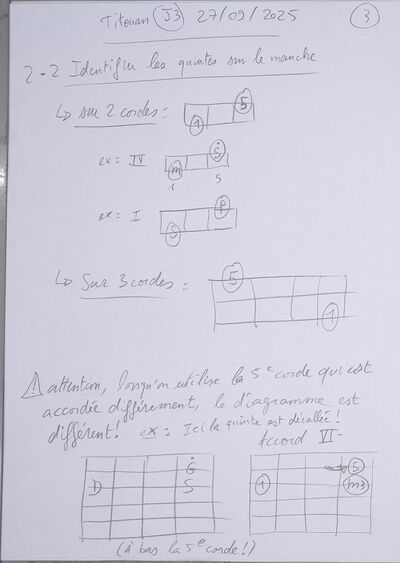 Titouan J3 27/09/2025 3
2-2 Identifier les quintes sur le manche
↳ sur 2 cordes :
5
1
ex = IV
m Ṡ
1 5
ex = I
P
S
↳ Sur 3 cordes =
5
1
⚠ attention, lorsqu'on utilise la 5e corde qui est
accordée différement, le diagramme est
différent! ex = Ici la quinte est décallée!
Accord VI-
Ġ
D S
5
1 m3
(À bas la 5e corde!)